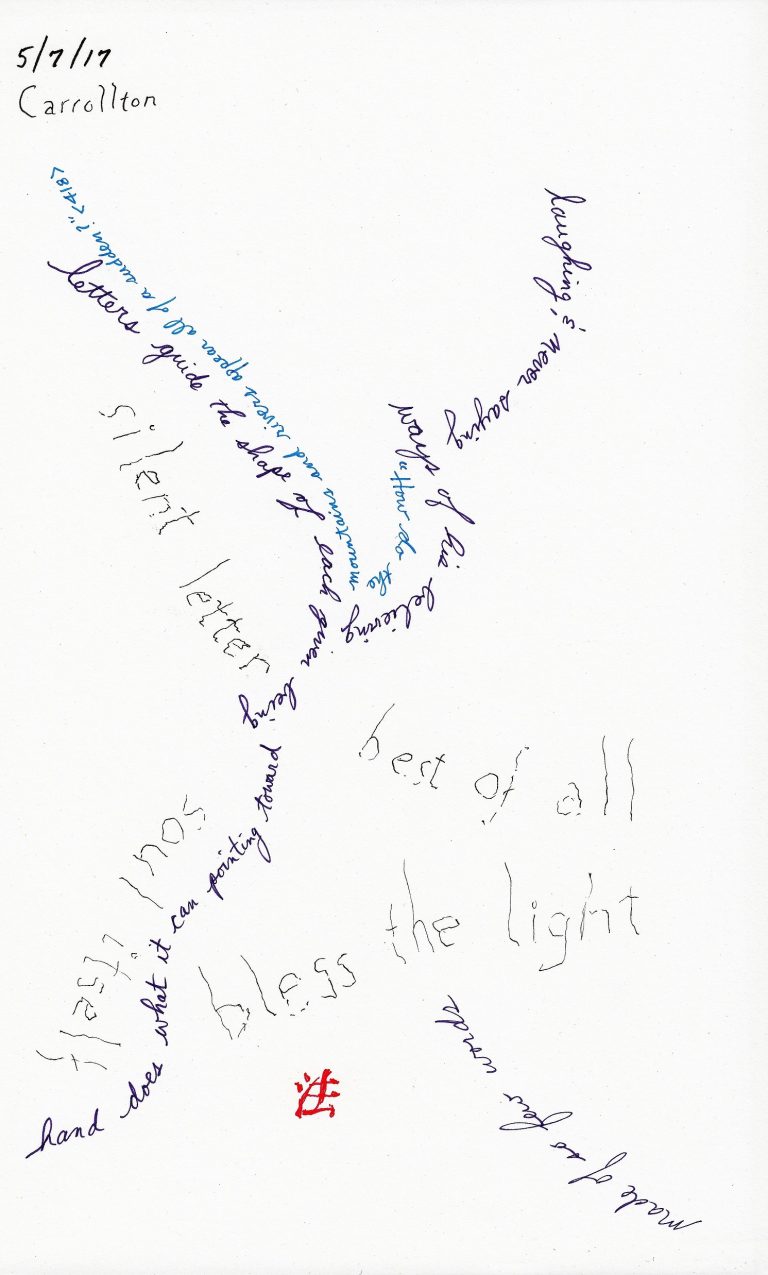 5/7/17
Carrollton
"How do the
mountains and rivers appear all of a sudden?" <418>
letters guide the shape of each given being
laughing, & never saying
of his believing
silent letter
hand does what it can pointing toward
soul itself
best of all
bless the light
made of so few words
法